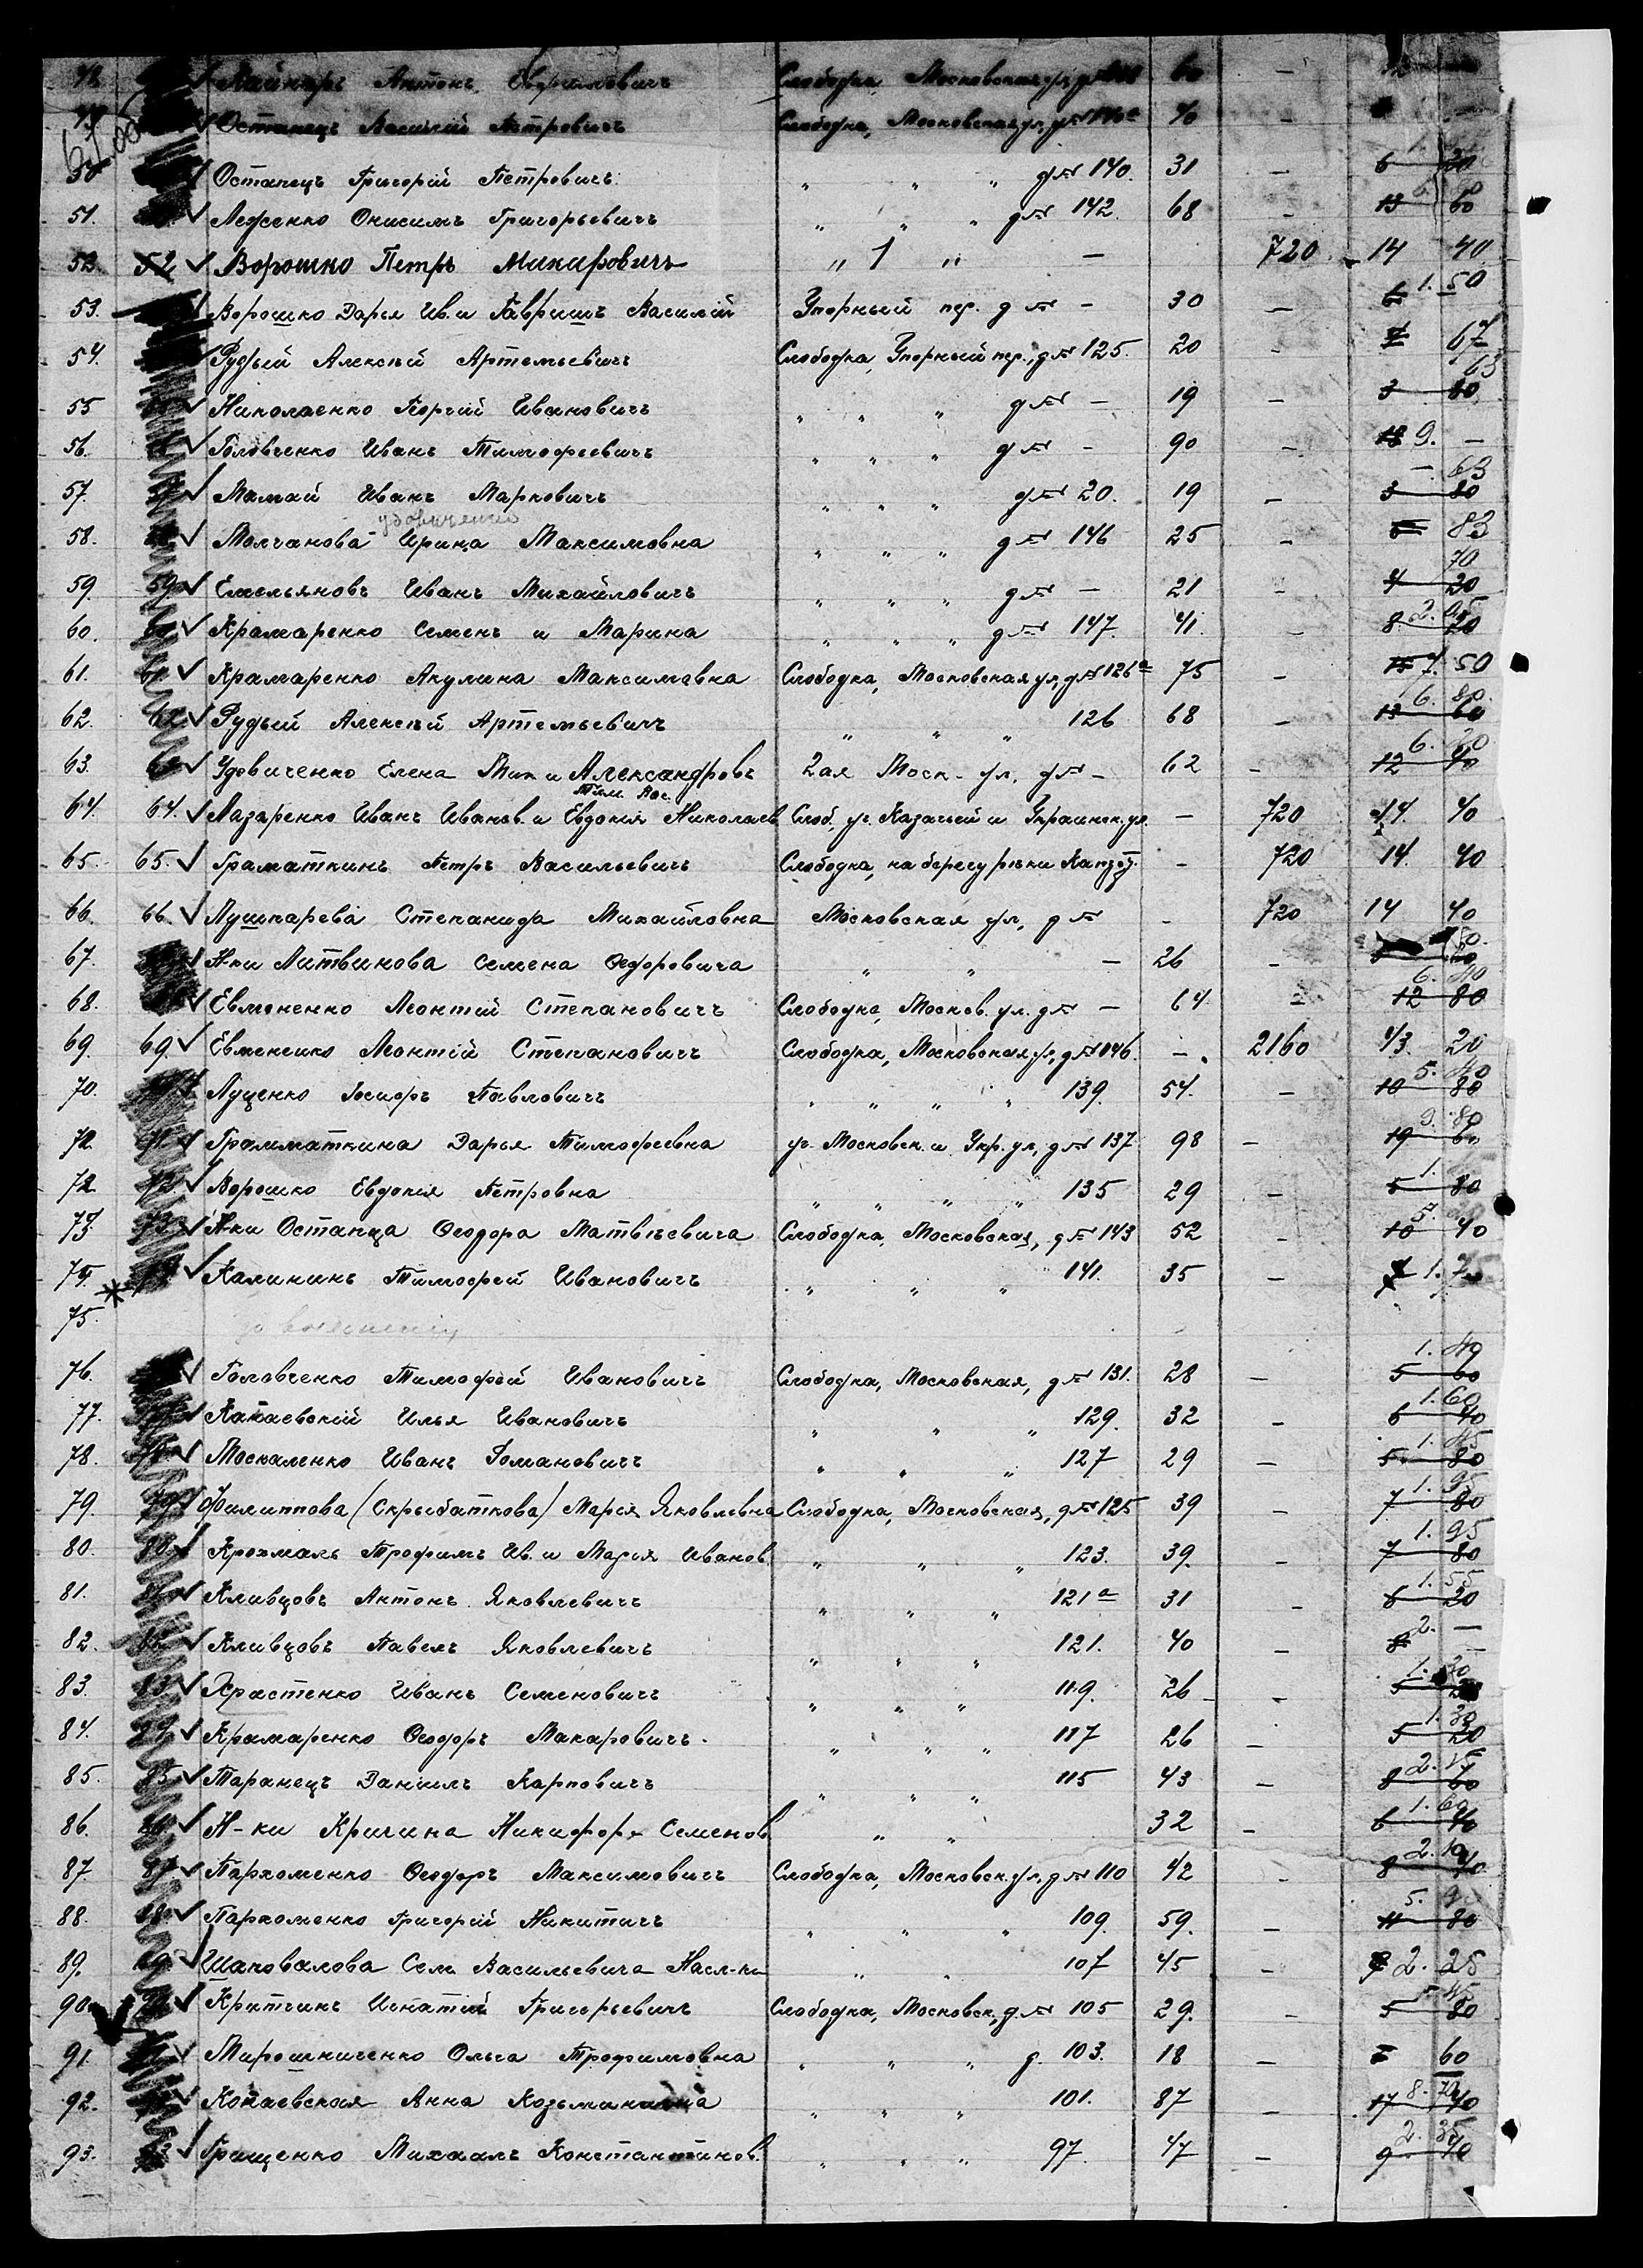 48. Антонъ Слободка, Московская ул. 60 —
Останецъ Василій Петровичъ Слободка, Московская ул., д № 140а 70 —
50 Останецъ Григорій Петровичъ " " " д № 140. 31 — 6 20
51. Леженко Онисимъ Григорьевичъ " " " д № 142. 68 — 13 60
52. 52 Ворошко Петръ Макаровичъ " 1 " — 720 14 40
53. Ворошко Дарья Ив. и Гавришъ Василій Упорный пер. д № — 30 — 6 1. 50
54. Рудый Алексѣй Артемьевичъ Слободка, Упорный пер., д № 125. 20 — 67
55 Николаенко Георгій Ивановичъ " " " д № — 19 — 3 80 63
56. Головченко Иванъ Тимофеевичъ " " " д № — 90 — 18 9. —
57. Мамай Иванъ Марковичъ " " " д № 20. 19 — 3 80 — 63
58. Молчанова Ирина Максимовна " " " д № 146 25 — 5 83
59 59 Емельяновъ Иванъ Михайловичъ " " " д № — 21 — 4 20 70
60. 60 Крамаренко Семенъ и Марина " " " д № 147. 41. — 8 20 2. 05
61. 61 Крамаренко Акулина Максимовна Слободка, Московская ул., д № 126а 75 — 15 7. 50
62. 62 Рудый Алексѣй Артемьевичъ " " " 126 68 — 13 60 6. 80.
63. 63 Удовиченко Елена Тим. и Александровъ 2ая Моск. ул. д № — 62 — 12 40 6. 20
Тим. Вас.
64. 64. Лазаренко Иванъ Иванов. и Евдокія Николаев. Слоб., уг. Казачьей и Украинск. ул. — 720 14. 40
65. 65. Граматкинъ Петръ Васильевичъ Слободка, на берегу рѣки — 720 14. 40
66. 66. Лушпарева Степанида Михайловна Московская ул., д № — 720 14 40
67. Н-ки Литвинова Семена Федоровича " " — 26 —
68. Евмененко Леонтій Степановичъ Слободка, Москов. ул. д № — 64 — 12 80 6. 40
69. 69. Евмененко Леонтій Степановичъ Слободка, Московская ул., д № 146. — 2160 43. 20
70. Луценко Павловичъ " " " " 139. 54. — 10 80 5. 40
72. Грамматкина Дарья Тимофеевна уг. Московск. и Укр. ул., д № 137 98 — 19 60 9. 80
72 72 Ворошко Евдокія Петровна " " " 135 29 — 5 80 1.
73 73 Н-ки Останца Феодора Матвѣевича Слободка, Московская, д № 143 52 — 10 40 5.
74. Калининъ Тимофей Ивановичъ " " " 141. 35 — 7 1. 75
75.
76. Головченко Тимофей Ивановичъ Слободка, Московская, д № 131. 28 — 5 60 1. 40
77. Капаевскій Илья Ивановичъ " " " 129. 32 — 6 40 1. 60
78. Москаленко Иванъ Романовичъ " " " 127 29 — 5. 80 1. 45
79. 79 Филиппова (Скрыбаткова) Марія Яковлевна Слободка, Московская, д № 125 39 — 7 80 1. 95
80. 80 Крохмаль Трофимъ Ив. и Марія Иванов. " " " 123. 39. — 7 80 1. 95
81. Кливцовъ Антонъ Яковлевичъ " " " 121а 31 — 6 20 1. 55
82. 82 Кливцовъ Павелъ Яковлевичъ " " " 121. 40 — 8 2. —
83. 83 Храстенко Иванъ Семеновичъ " " " 119. 26 — — 5 20 1. 30
84. Крамаренко Феодоръ Макаровичъ. " " " 117 26 — 5 20 1. 30
85. 85 Таранецъ Даніилъ Карповичъ " " " 115 43 — 8 60 2. 15
86. 86 Н-ки Кричина Никифор. Семенов. " " 32 — 6 40 1. 60
87. 87. Пархоменко Феодоръ Максимовичъ Слободка, Московск. ул., д № 110 42 — 8 40 2. 10
88. Пархоменко Григорій Никитичъ " " " 109. 59. — 11 80 5. 9
89. Шаповалова Сем. Васильевича Насл-ки " " 107 45 — 9 2. 25
90. Критчинъ Игнатій Григорьевичъ Слободка, Московск., д. № 105 29. — 5 80 1. 45
91. Мирошниченко Ольга Трофимовна " " " д. 103. 18 — 60
92. Копаевская Анна Козьминична " " " 101. 87 — 17 40 8. 70
93. Грищенко Михаилъ Константинов. " " " 97. 47 — 9 40 2. 35